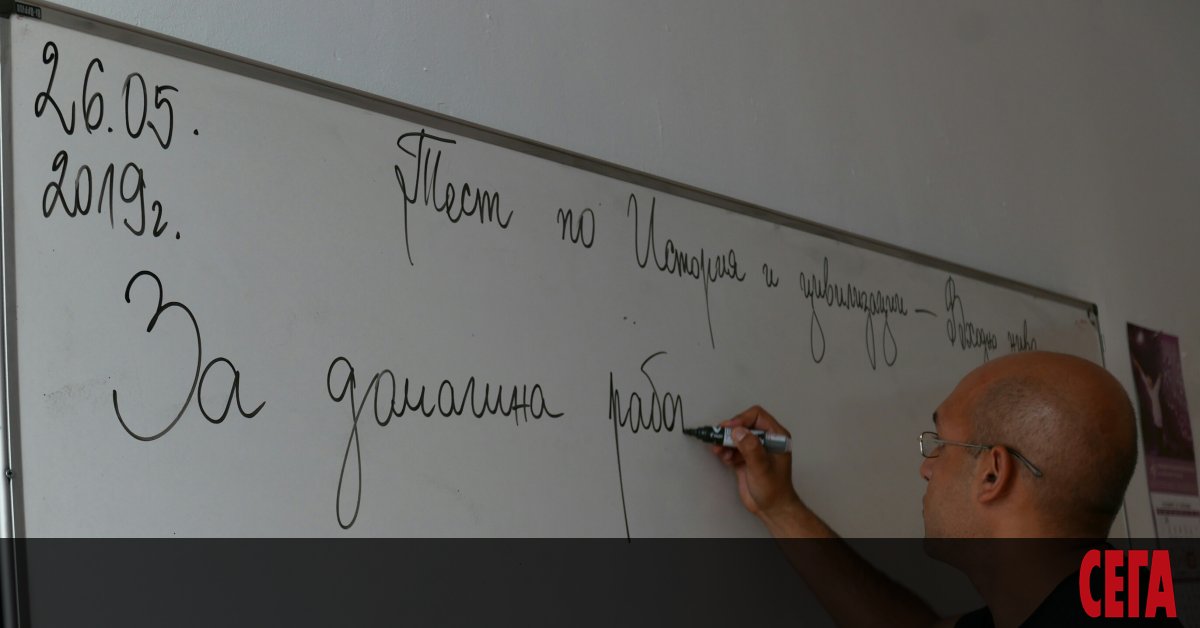 26.05.
2019г.
Тест по История и цивилизации – Входно
За домашна рабо
СЕГА